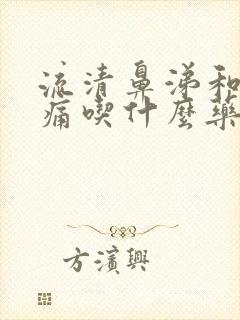 流清鼻涕和
痛喫什麼藥
方濱興